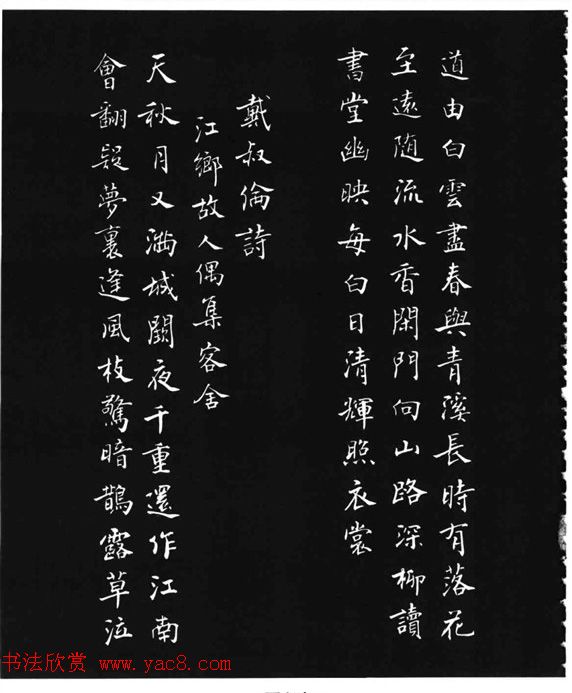 道由白雲盡春與青溪長時有落花
至遠隨流水香閑門向山路深柳讀
書堂幽映每白日清輝照衣裳
戴叔倫詩
江鄉故人偶集客舍
天秋月又滿城闕夜千重還作江南
會翻疑夢裏逢風枝驚暗鵲露草泣
书法欣赏 www.yac8.com